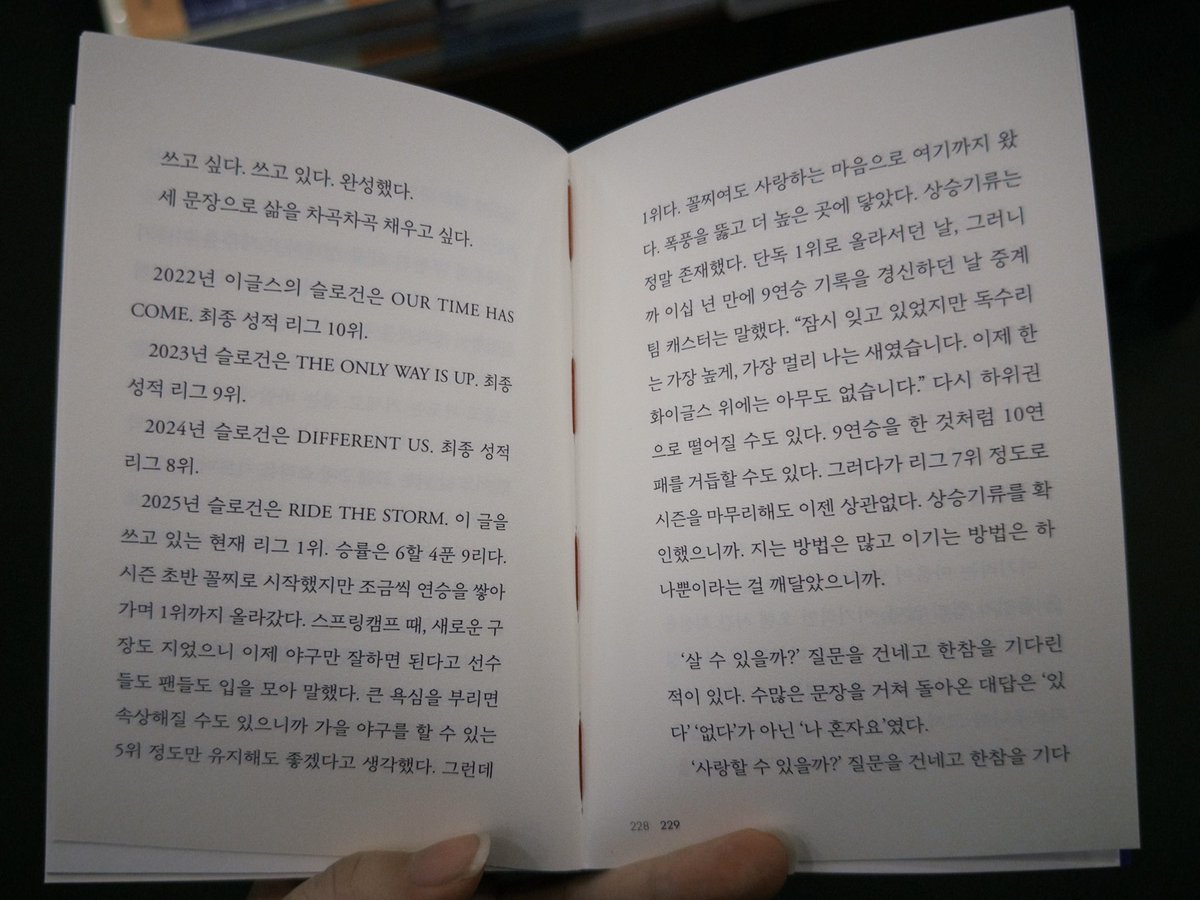 쓰고 싶다. 쓰고 있다. 완성했다.
세 문장으로 삶을 차곡차곡 채우고 싶다.
2022년 이글스의 슬로건은 OUR TIME HAS
COME. 최종 성적 리그 10위.
2023년 슬로건은 THE ONLY WAY IS UP. 최종
성적 리그 9위.
2024년 슬로건은 DIFFERENT US. 최종 성적
리그 8위.
2025년 슬로건은 RIDE THE STORM. 이 글을
쓰고 있는 현재 리그 1위. 승률은 6할 4푼 9리다.
시즌 초반 꼴찌로 시작했지만 조금씩 연승을 쌓아
가며 1위까지 올라갔다. 스프링캠프 때, 새로운 구
장도 지었으니 이제 야구만 잘하면 된다고 선수
들도 팬들도 입을 모아 말했다. 큰 욕심을 부리면
속상해질 수도 있으니까 가을 야구를 할 수 있는
5위 정도만 유지해도 좋겠다고 생각했다. 그런데
1위다. 꼴찌여도 사랑하는 마음으로 여기까지 왔
다. 폭풍을 뚫고 더 높은 곳에 닿았다. 상승기류는
정말 존재했다. 단독 1위로 올라서던 날, 그러니
까 이십 년 만에 9연승 기록을 경신하던 날 중계
팀 캐스터는 말했다. “잠시 잊고 있었지만 독수리
는 가장 높게, 가장 멀리 나는 새였습니다. 이제 한
화이글스 위에는 아무도 없습니다.” 다시 하위권
으로 떨어질 수도 있다. 9연승을 한 것처럼 10연
패를 거듭할 수도 있다. 그러다가 리그 7위 정도로
시즌을 마무리해도 이젠 상관없다. 상승기류를 확
인했으니까. 지는 방법은 많고 이기는 방법은 하
나뿐이라는 걸 깨달았으니까.
‘살 수 있을까?’ 질문을 건네고 한참을 기다린
적이 있다. 수많은 문장을 거쳐 돌아온 대답은 ‘있
다’ ‘없다’가 아닌 ‘나 혼자요’였다.
‘사랑할 수 있을까?’ 질문을 건네고 한참을 기다
228 229